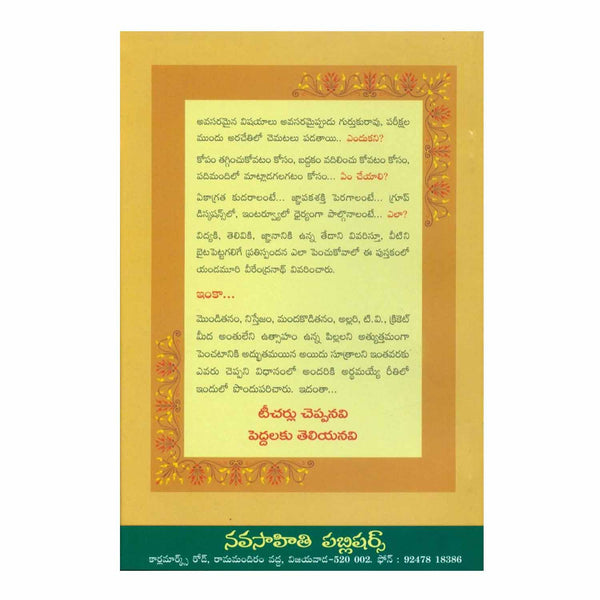 అవసరమైన విషయాలు అవసరమైప్పుడు గుర్తుకురావు, పరీక్షల
ముందు అరచేతిలో చెమటలు పడతాయి.. ఎందుకని?
కోపం తగ్గించుకోవటం కోసం, బద్ధకం వదిలించు కోవటం కోసం,
పదిమందిలో మాట్లాడగలగటం కోసం... ఏం చేయాలి?
ఏకాగ్రత కుదరాలంటే... జ్ఞాపకశక్తి పెరగాలంటే... గ్రూప్
డిస్కషన్స్‌లో, ఇంటర్వ్యూలో ధైర్యంగా పాల్గొనాలంటే... ఎలా?
విద్యకి, తెలివికి, జ్ఞానానికి ఉన్న తేడాని వివరిస్తూ, వీటిని
బైటపెట్టగలిగే ప్రతిస్పందన ఎలా పెంచుకోవాలో ఈ పుస్తకంలో
యండమూరి వీరేంద్రనాథ్ వివరించారు.
ఇంకా...
మొండితనం, నిస్తేజం, మందకొడితనం, అల్లరి, టి.వి., క్రికెట్
మీద అంతులేని ఉత్సాహం ఉన్న పిల్లలని అత్యుత్తమంగా
పెంచటానికి అద్భుతమయిన అయిదు సూత్రాలని ఇంతవరకు
ఎవరు చెప్పని విధానంలో అందరికి అర్థమయ్యే రీతిలో
ఇందులో పొందుపరిచారు. ఇదంతా...
టీచర్లు చెప్పనవి
పెద్దలకు తెలియనవి
నవసాహితి పబ్లిషర్స్
కార్ల్‌మార్క్స్ రోడ్, రామమందిరం వద్ద, విజయవాడ-520 002. ఫోన్ : 92478 18386